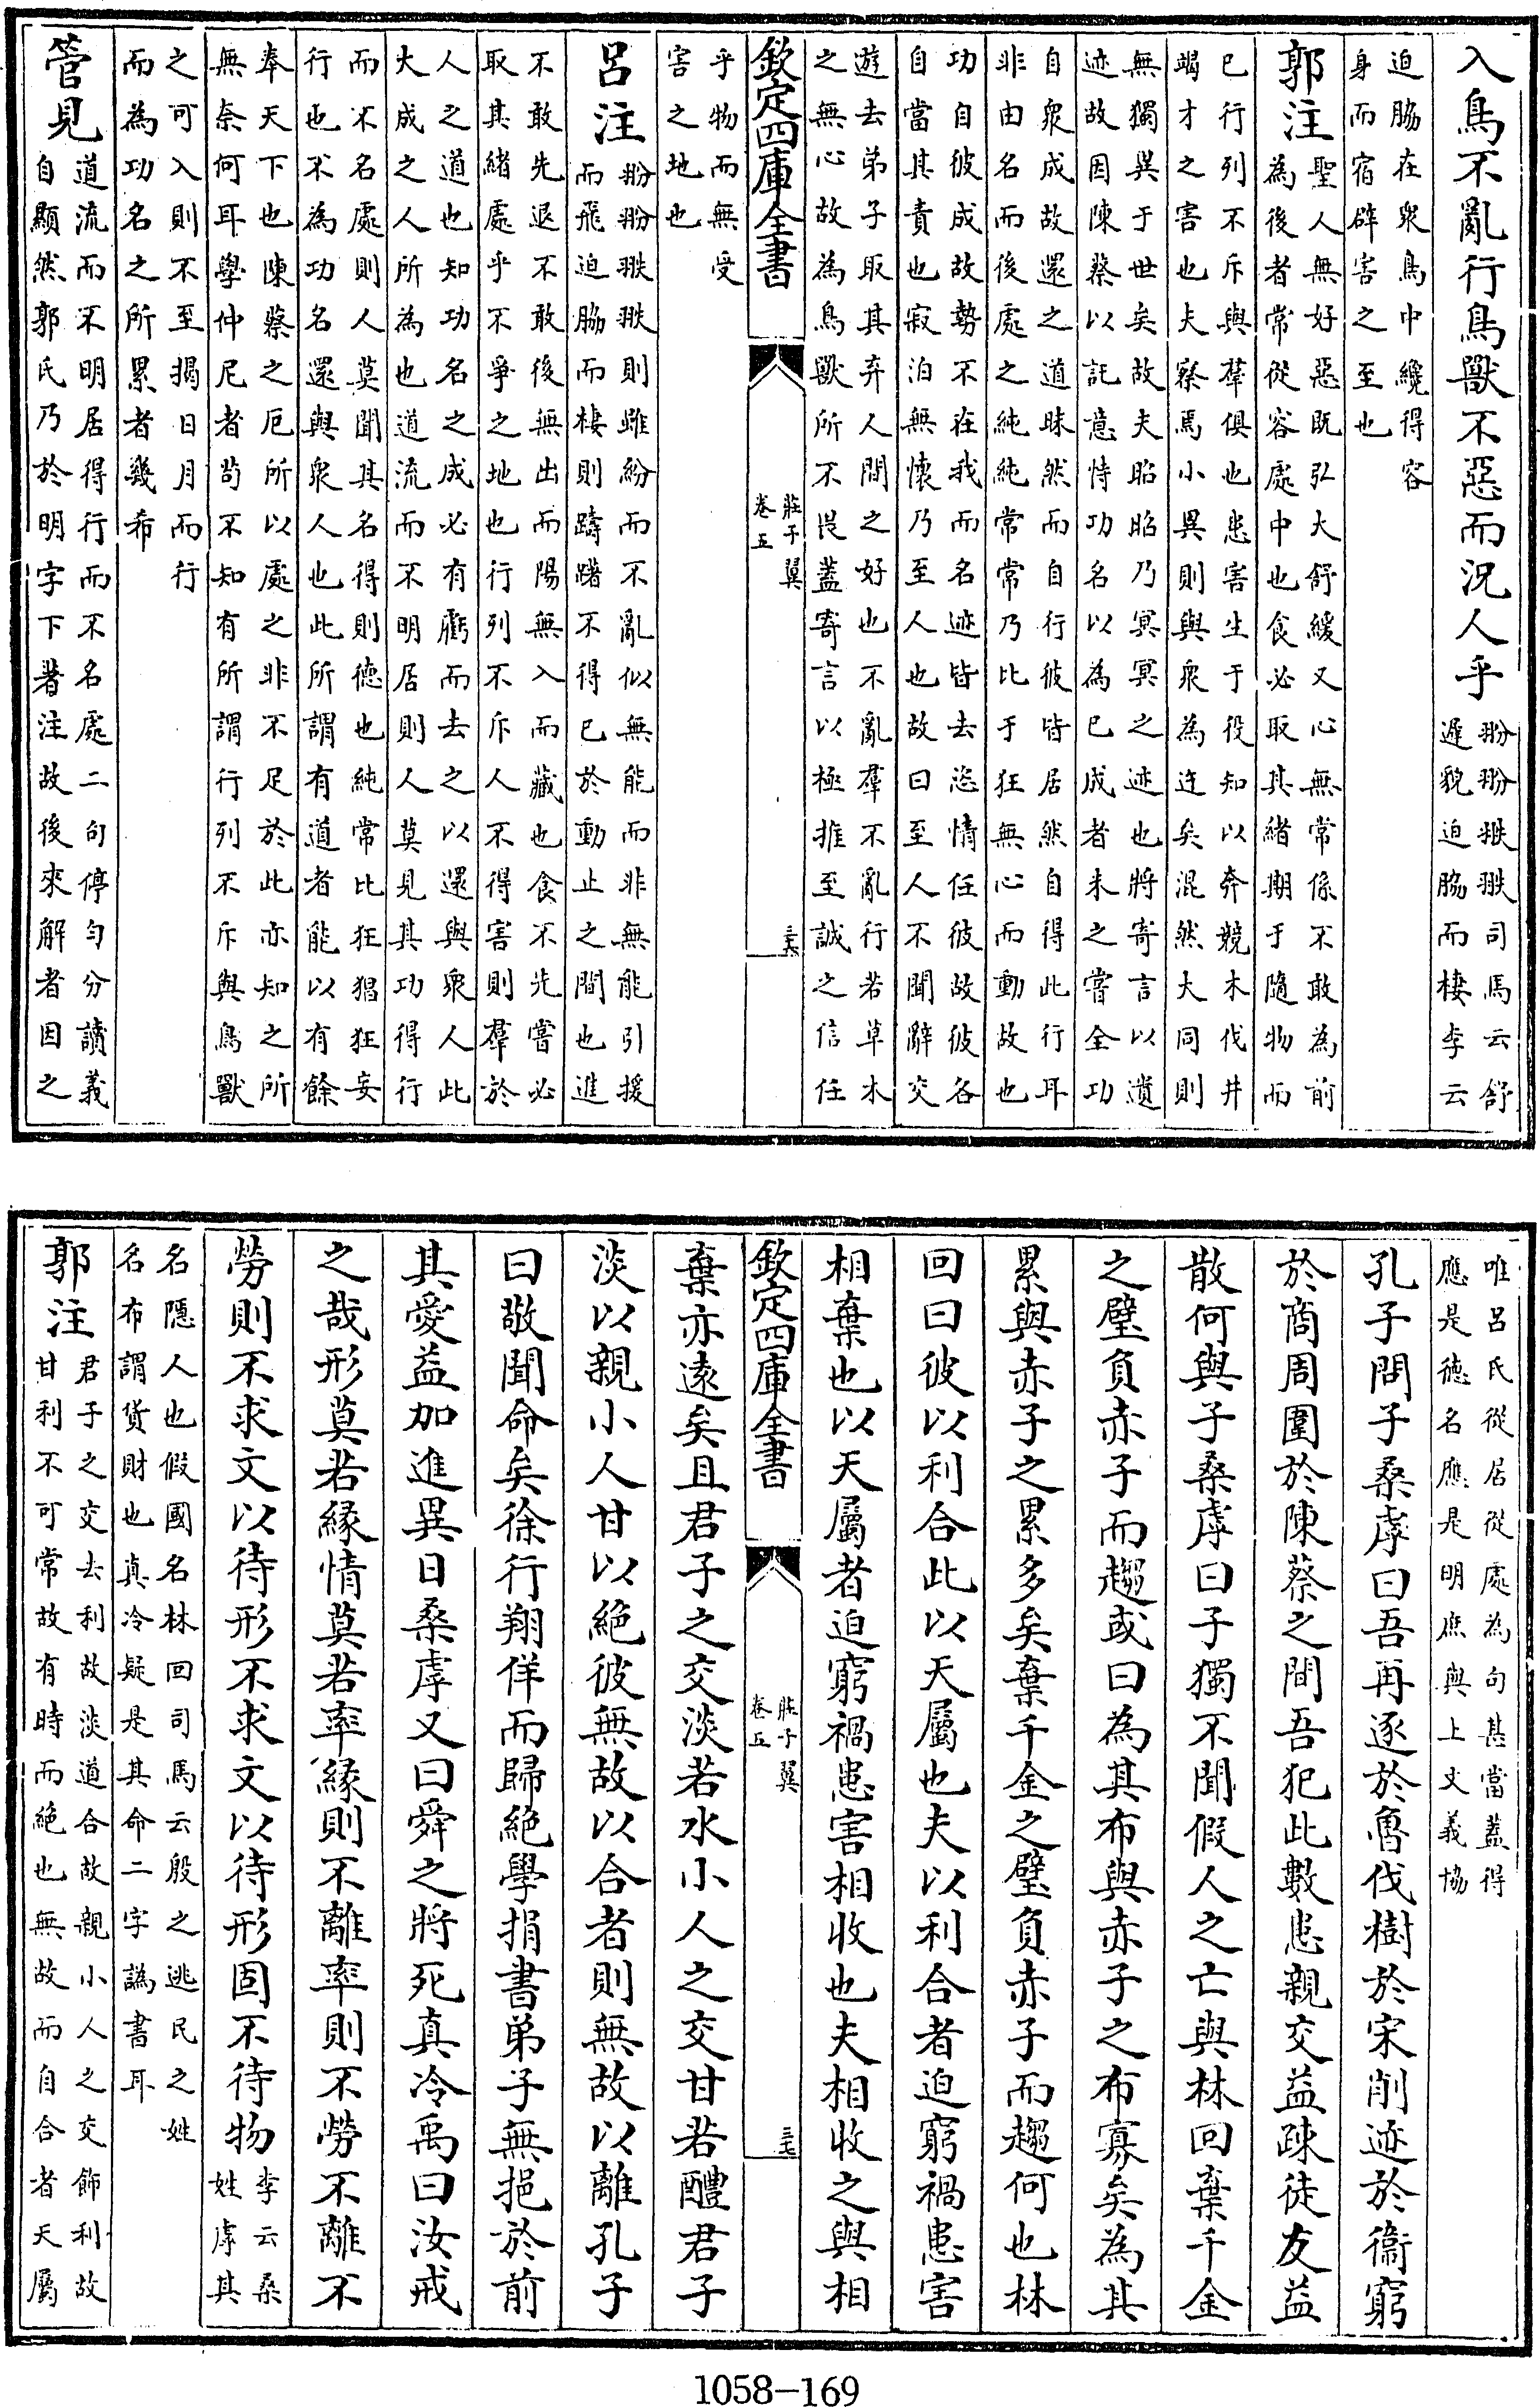 入鳥不亂行鳥獸不惡而況人乎
翂翂翐翐司馬云舒
遲貌迫脇而棲李云
迫脇在衆鳥中纔得容
身而宿辟害之至也
郭注
聖人無好惡既弘大舒緩又心無常係不敢為前
為後者常從容處中也食必取其緒期于隨物而
已行列不斥與羣俱也患害生于役知以奔競木伐井
竭才之害也夫察焉小異則與衆為迕矣混然大同則
無獨異于世矣故夫昭昭乃冥冥之迹也將寄言以遺
迹故因陳蔡以託意恃功名以為已成者未之嘗全功
自衆成故還之道昧然而自行彼皆居然自得此行耳
非由名而後處之純純常常乃比于狂無心而動故也
功自彼成故勢不在我而名迹皆去恣情任彼故彼各
自當其責也寂泊無懷乃至人也故曰至人不聞辭交
遊去弟子取其弃人間之好也不亂羣不亂行若草木
之無心故為鳥獸所不畏蓋寄言以極推至誠之信任
欽定四庫全書
莊子翼
卷五
三六
乎物而無受
害之地也
呂注
翂翂翐翐則雖紛而不亂似無能而非無能引援
而飛迫脇而棲則躊躇不得已於動止之間也進
不敢先退不敢後無出而陽無入而藏也食不先嘗必
取其緒處乎不爭之地也行列不斥人不得害則羣於
人之道也知功名之成必有虧而去之以還與衆人此
大成之人所為也道流而不明居則人莫見其功得行
而不名處則人莫聞其名得則德也純常比狂猖狂妄
行也不為功名還與衆人也此所謂有道者能以有餘
奉天下也陳蔡之厄所以處之非不足於此亦知之所
無奈何耳學仲尼者苟不知有所謂行列不斥與鳥獸
之可入則不至揭日月而行
而為功名之所累者幾希
管見
道流而不明居得行而不名處二句停勻分讀義
自顯然郭氏乃於明字下著注故後來解者因之
唯呂氏從居從處為句甚當蓋得
應是德名應是明庶與上文義協
孔子問子桑雽曰吾再逐於魯伐樹於宋削迹於衞窮
於商周圍於陳蔡之間吾犯此數患親交益疎徒友益
散何與子桑雽曰子獨不聞假人之亡與林回棄千金
之璧負赤子而趨或曰為其布與赤子之布寡矣為其
累與赤子之累多矣棄千金之璧負赤子而趨何也林
回曰彼以利合此以天屬也夫以利合者迫窮禍患害
相棄也以天屬者迫窮禍患害相收也夫相收之與相
欽定四庫全書
莊子翼
卷五
三七
棄亦遠矣且君子之交淡若水小人之交甘若醴君子
淡以親小人甘以絕彼無故以合者則無故以離孔子
曰敬聞命矣徐行翔佯而歸絕學捐書弟子無挹於前
其愛益加進異日桑雽又曰舜之將死真泠禹曰汝戒
之哉形莫若緣情莫若率緣則不離率則不勞不離不
勞則不求文以待形不求文以待形固不待物
李云桑
姓雽其
名隱人也假國名林回司馬云殷之逃民之姓
名布謂貨財也真泠疑是其命二字譌書耳
郭注
君子之交去利故淡道合故親小人之交飾利故
甘利不可常故有時而絕也無故而自合者天屬
1058-169